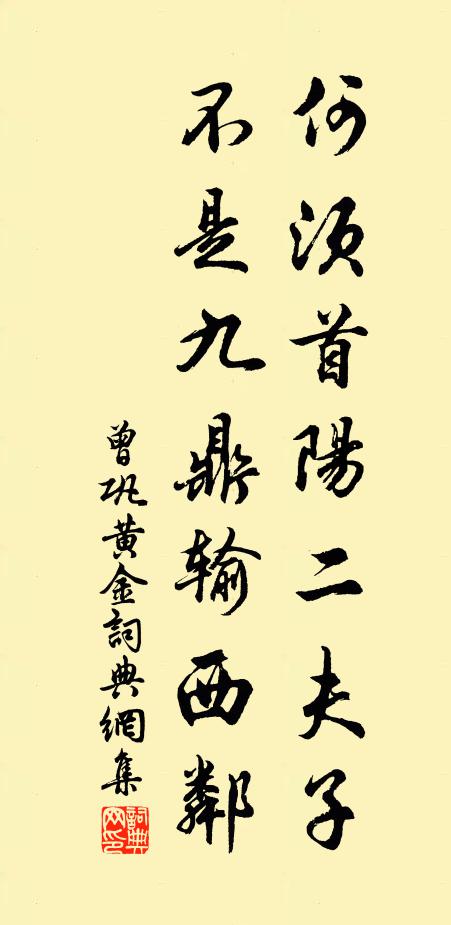 何須首陽二夫子
不是九鼎输西鄰
曾巩黄金詞典網集
詞典
网印